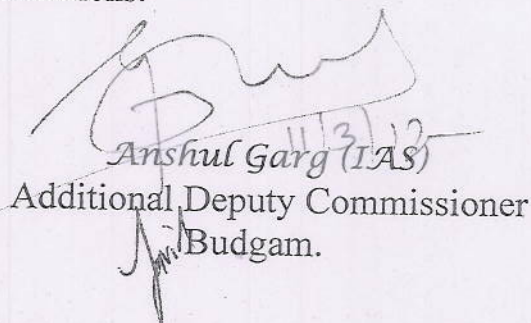 11/3/15
Anshul Garg (IAS)
Additional Deputy Commissioner
Budgam.